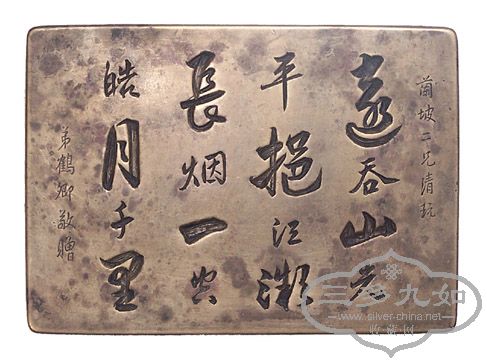 蘭坡二兄清玩
遠吞山光
平挹江瀬
長烟一空
皓月千里
弟鶴卿敬贈
三多九如
www.silver-china.net
收藏网